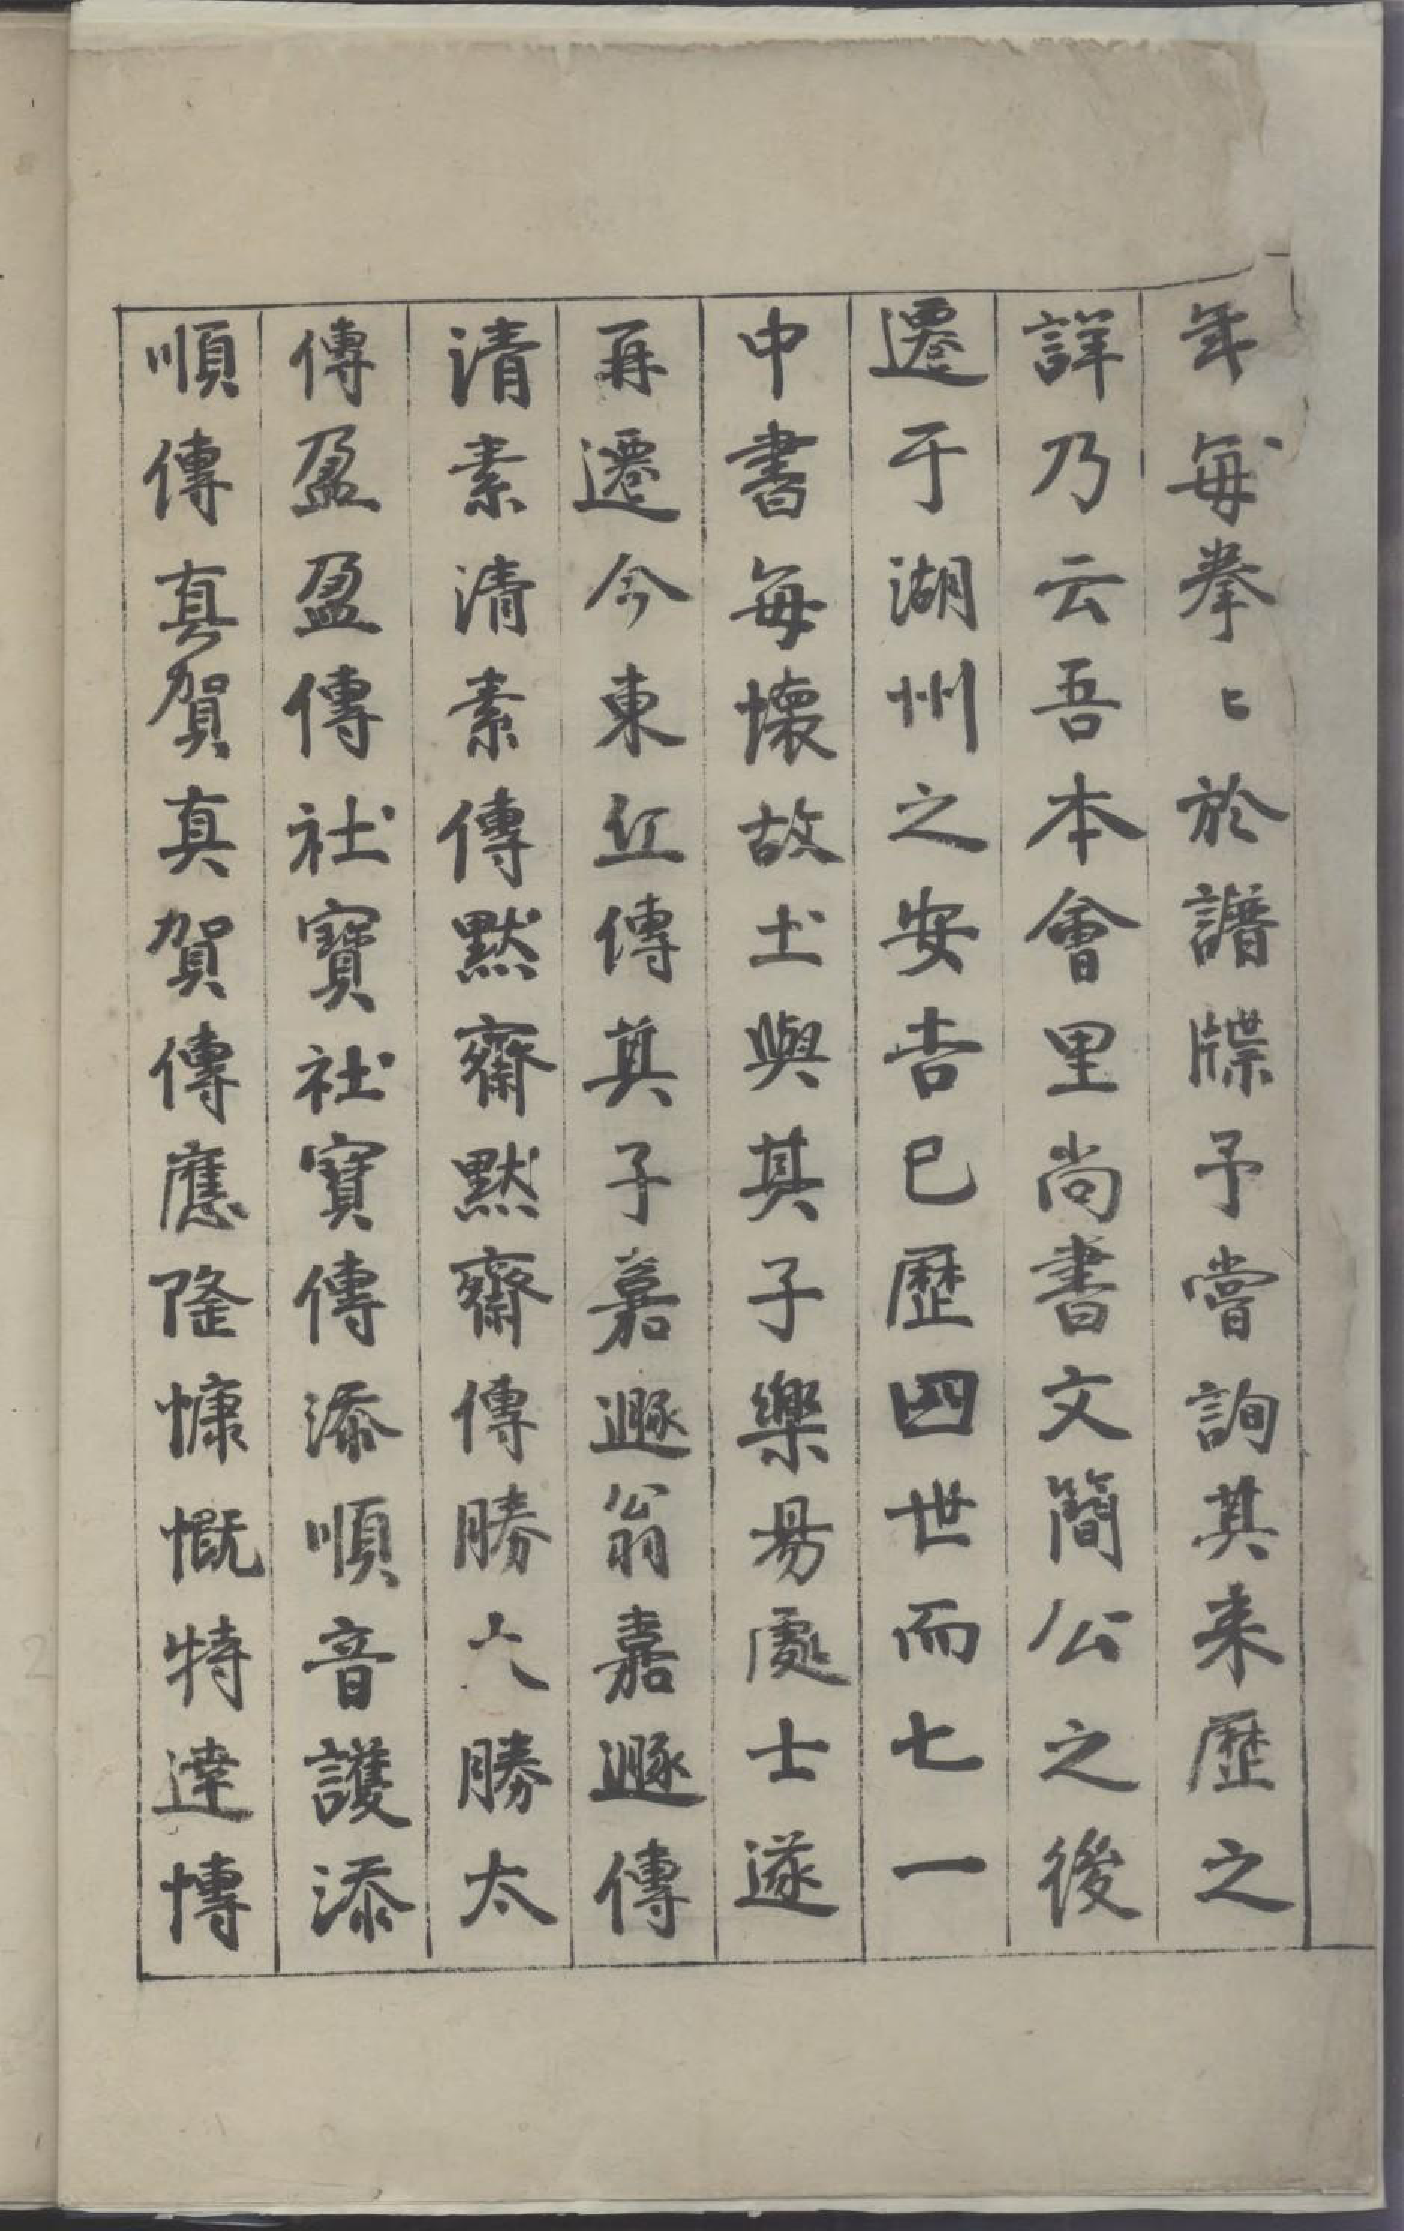 年每拳〻於譜牒予嘗詢其来歴之
詳乃云吾本會里尚書文簡公之後
遷于湖州之安吉已歴四世而七一
中書每懷故土與其子樂昜處士遂
再遷今東丘傳其子嘉遯翁嘉遯傳
清素清素傳默齋默齋傳勝六勝太
傳盈盈傳社寶社寶傳添順音護添
順傳真賀真賀傳應隆慷慨特達博